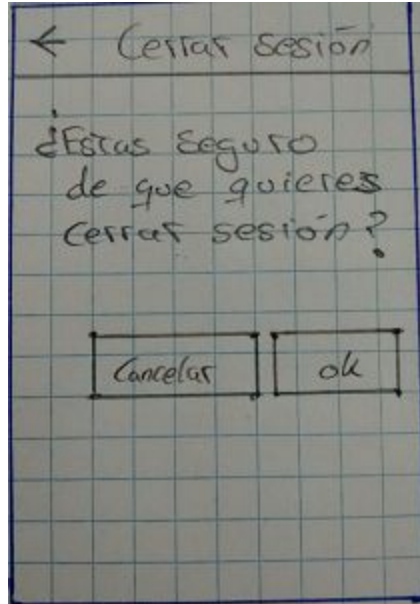 ← Cerrar sesión
¿Estas seguro
de que quieres
cerrar sesión?
Cancelar ok